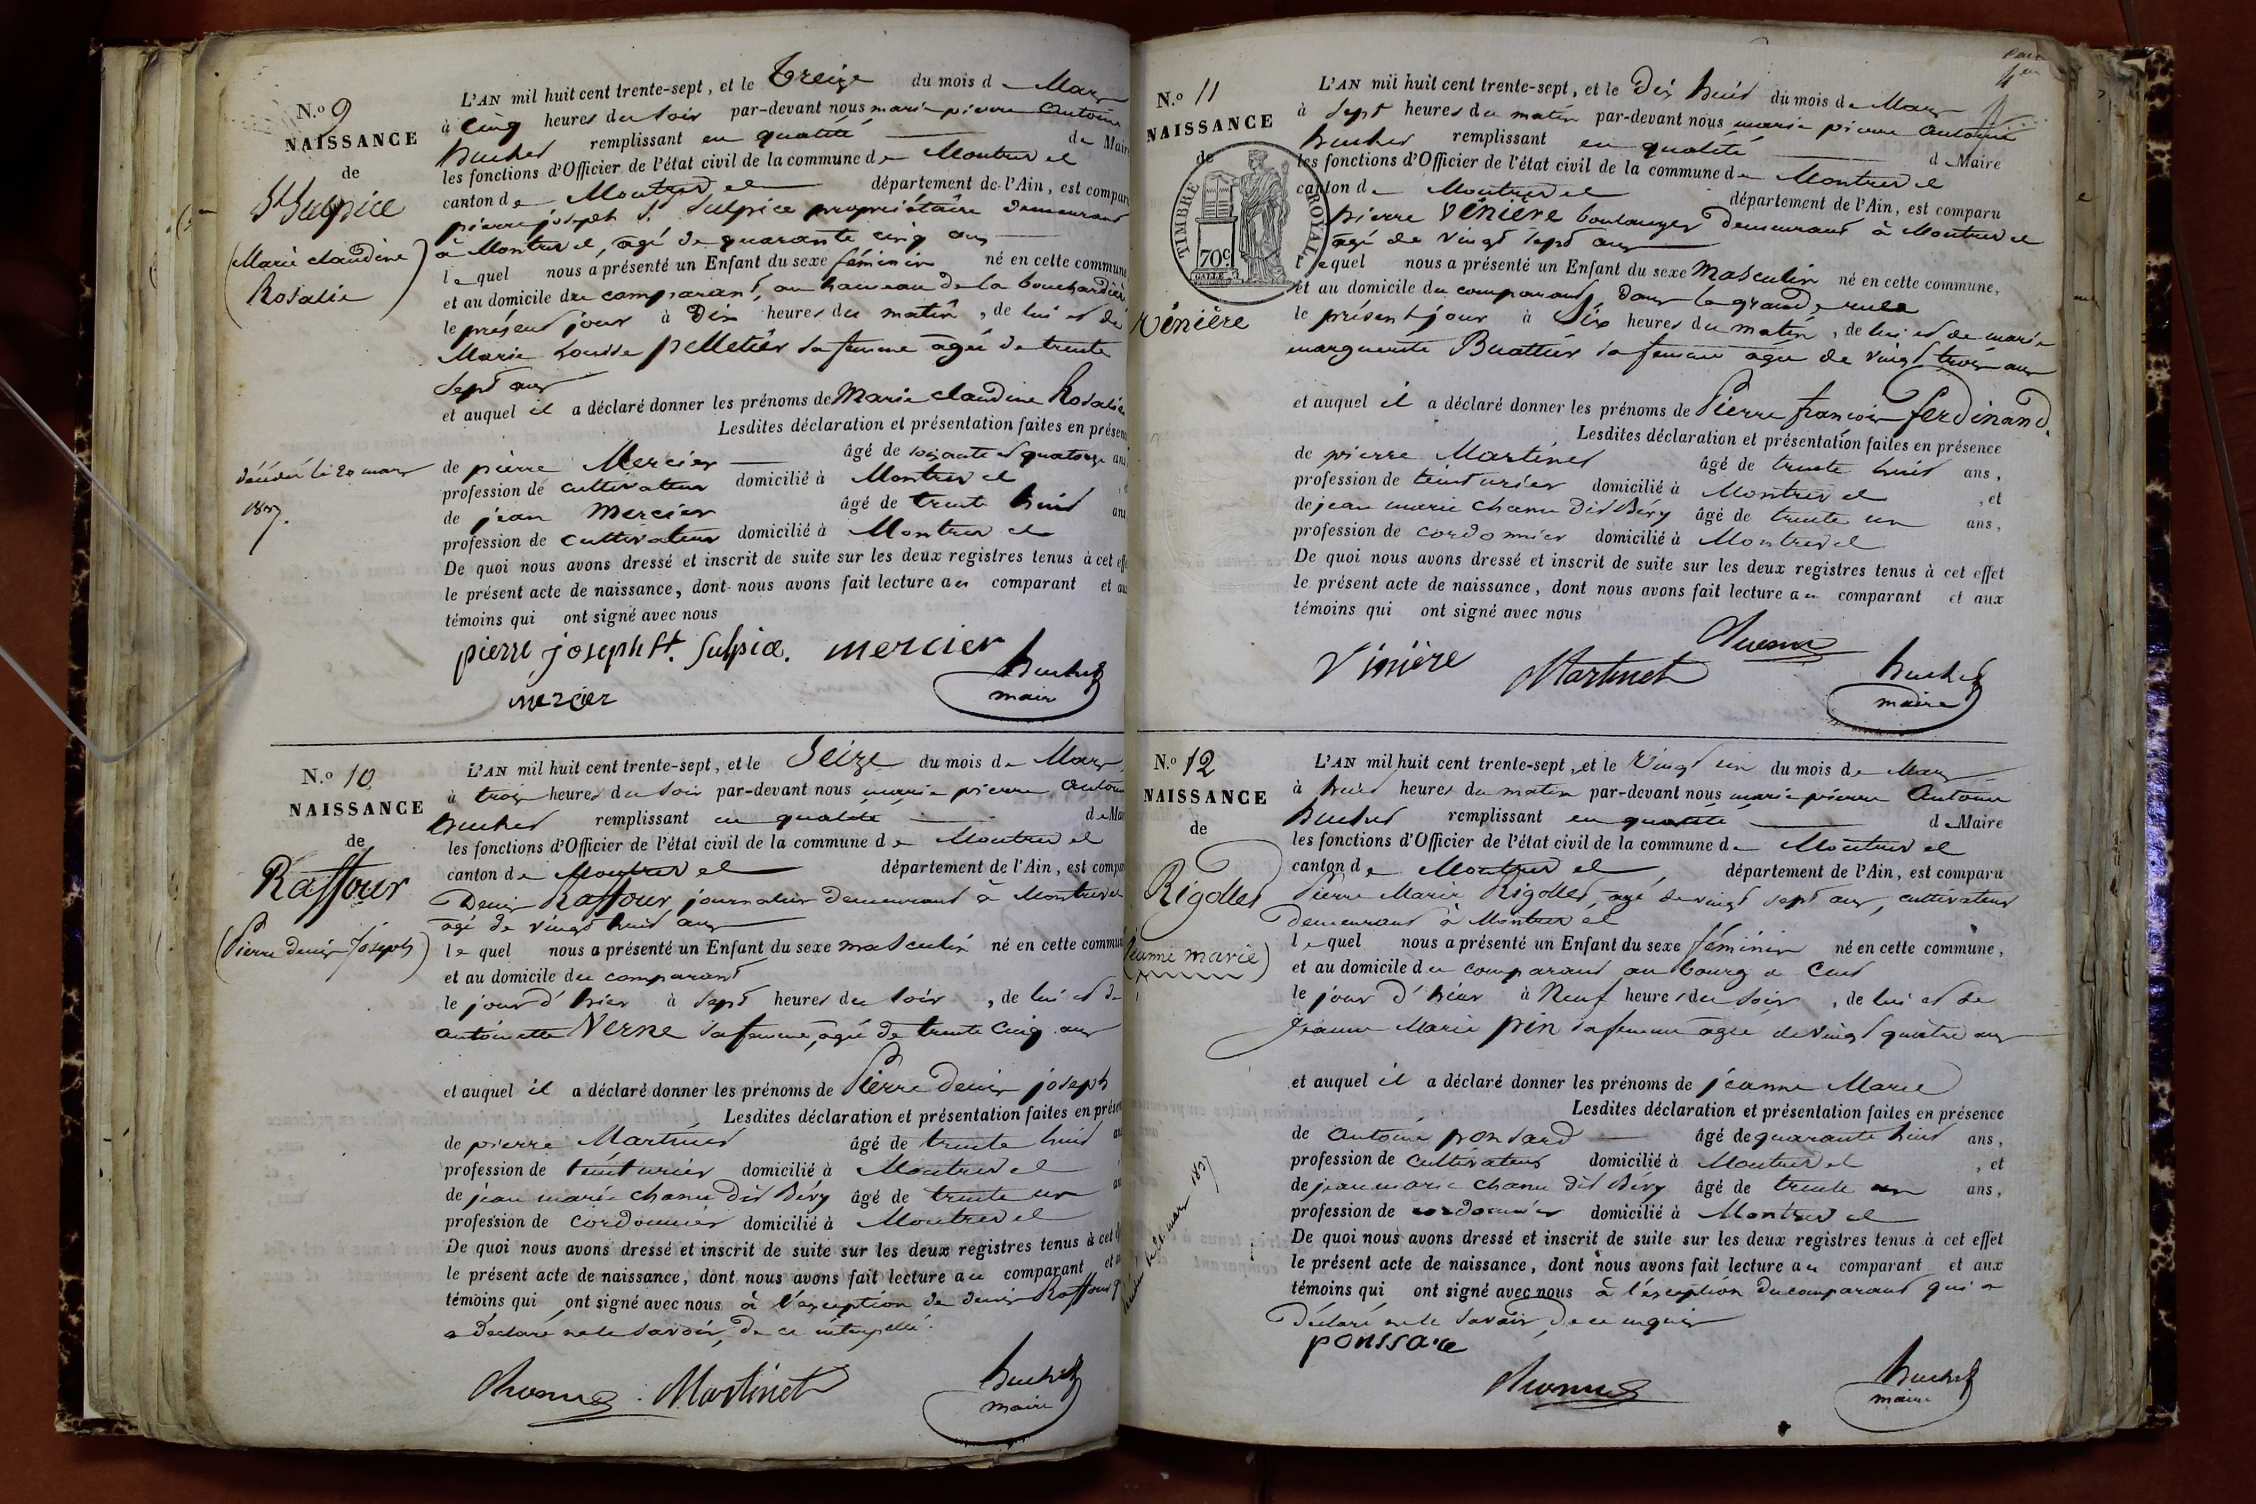 N.o 9
NAISSANCE
de
St Sulpice
(Marie claudine
Rosalie)
décédée le 20 mars
1837.
L'AN mil huit cent trente-sept, et le treize du mois de Mars
à cinq heures du soir par-devant nous marie pierre antoine
huchet remplissant en qualité de Maire
les fonctions d'Officier de l'état civil de la commune de Montrevel
canton de Montrevel département de l'Ain, est comparu
pierre joseph St Sulpice propriétaire demeurant
à Montrevel, agé de quarante cinq ans
lequel nous a présenté un Enfant du sexe féminin né en cette commune
et au domicile du comparant, au hameau de la bouchardière
le présent jour à dix heures du matin, de lui et de
Marie Louise pelletier sa femme agée de trente
sept ans
et auquel il a déclaré donner les prénoms de Marie claudine Rosalie
Lesdites déclaration et présentation faites en présen
de pierre Mercier âgé de soixante et quatorze ans
profession de cultivateur domicilié à Montrevel
de jean mercier âgé de trente huit ans
profession de cultivateur domicilié à Montrevel
De quoi nous avons dressé et inscrit de suite sur les deux registres tenus à cet eff
le présent acte de naissance, dont nous avons fait lecture au comparant et au
témoins qui ont signé avec nous
pierre joseph St. Sulpice. mercier
huchet
mercier
maire
N.o 10
NAISSANCE
de
Raffour
(Pierre denis Joseph)
L'AN mil huit cent trente-sept, et le Seize du mois de Mars
à trois heures du soir par-devant nous marie pierre antoine
huchet remplissant en qualité de Mai
les fonctions d'Officier de l'état civil de la commune de Montrevel
canton de Montrevel département de l'Ain, est compar
Denis Raffour journalier demeurant à Montrevel
agé de vingt huit ans
lequel nous a présenté un Enfant du sexe masculin né en cette commun
et au domicile du comparant
le jour d'hier à sept heures du soir, de lui et de
antoinette Verne sa femme, agée de trente cinq ans
et auquel il a déclaré donner les prénoms de Pierre denis joseph
Lesdites déclaration et présentation faites en présen
de pierre Martinet âgé de trente huit an
profession de teinturier domicilié à Montrevel
de jean marie chanu dit Béry âgé de trente un an
profession de cordonnier domicilié à Montrevel
De quoi nous avons dressé et inscrit de suite sur les deux registres tenus à cet
le présent acte de naissance, dont nous avons fait lecture au comparant et
témoins qui ont signé avec nous à l'exception de denis Raffour q
a déclaré ne le savoir, de ce interpellé.
Martinet
huchet
maire
N.o 11
NAISSANCE
de
TIMBRE ROYAL
70c
Vénière
L'AN mil huit cent trente-sept, et le Dix huit du mois de Mars
à sept heures du matin par-devant nous marie pierre antoine
huchet remplissant en qualité de Maire
les fonctions d'Officier de l'état civil de la commune de Montrevel
canton de Montrevel département de l'Ain, est comparu
pierre Vénière boulanger demeurant à Montrevel
agé de vingt sept ans
lequel nous a présenté un Enfant du sexe masculin né en cette commune,
et au domicile du comparant, dans la grande rue
le présent jour à Six heures du matin, de lui et de marie
marguerite Buattier sa femme agée de vingt trois ans
et auquel il a déclaré donner les prénoms de Pierre françois ferdinand.
Lesdites déclaration et présentation faites en présence
de pierre Martinet âgé de trente huit ans,
profession de teinturier domicilié à Montrevel, et
de jean marie chanu dit Béry âgé de trente un ans,
profession de cordonnier domicilié à Montrevel
De quoi nous avons dressé et inscrit de suite sur les deux registres tenus à cet effet
le présent acte de naissance, dont nous avons fait lecture au comparant et aux
témoins qui ont signé avec nous
Vinière Martinet
huchet
maire
N.o 12
NAISSANCE
de
Rigollet
(Jeanne marie)
L'AN mil huit cent trente-sept, et le Vingt un du mois de Mars
à huit heures du matin par-devant nous marie pierre Antoine
huchet remplissant en qualité de Maire
les fonctions d'Officier de l'état civil de la commune de Montrevel
canton de Montrevel, département de l'Ain, est comparu
Pierre Marie Rigollet, agé de vingt sept ans, cultivateur
demeurant à Montrevel
lequel nous a présenté un Enfant du sexe féminin né en cette commune,
et au domicile du comparant au bourg de Cuet
le jour d'hier à Neuf heures du soir, de lui et de
Jeanne Marie pin sa femme agée de vingt quatre ans
et auquel il a déclaré donner les prénoms de jeanne Marie
Lesdites déclaration et présentation faites en présence
de antoine ponsard âgé de quarante huit ans,
profession de cultivateur domicilié à Montrevel, et
de jean marie chanu dit Béry âgé de trente un ans,
profession de cordonnier domicilié à Montrevel
De quoi nous avons dressé et inscrit de suite sur les deux registres tenus à cet effet
le présent acte de naissance, dont nous avons fait lecture au comparant et aux
témoins qui ont signé avec nous à l'exception du comparant qui a
déclaré ne le savoir, de ce enquis
huchet
maire